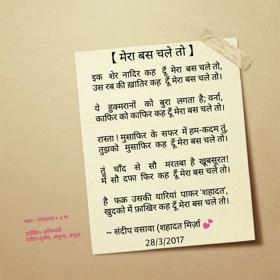 【 मेरा बस चले तो 】
इक शेर नादिर कह दूँ मेरा बस चले तो,
उस रब की ख़ातिर कह दूँ मेरा बस चले तो।
ये हुक्मरानों को बुरा लगता है; वर्ना,
काफिर को काफिर कह दूँ मेरा बस चले तो।
रास्ता ! मुसाफिर के सफर में हम-कदम तुं,
तुझको मुसाफिर कह दूँ मेरा बस चले तो।
तुं चाँद से सौ मरतबा है खूबसूरत!
में सौ दफा फिर कह दूँ मेरा बस चले तो।
है फक्र उसकी यारियां पाकर 'शहादत',
खुदको में फ़ाखिर कह दूँ मेरा बस चले तो।
~ संदीप वसावा (शहादत मिर्ज़ा 💕
28/3/2017